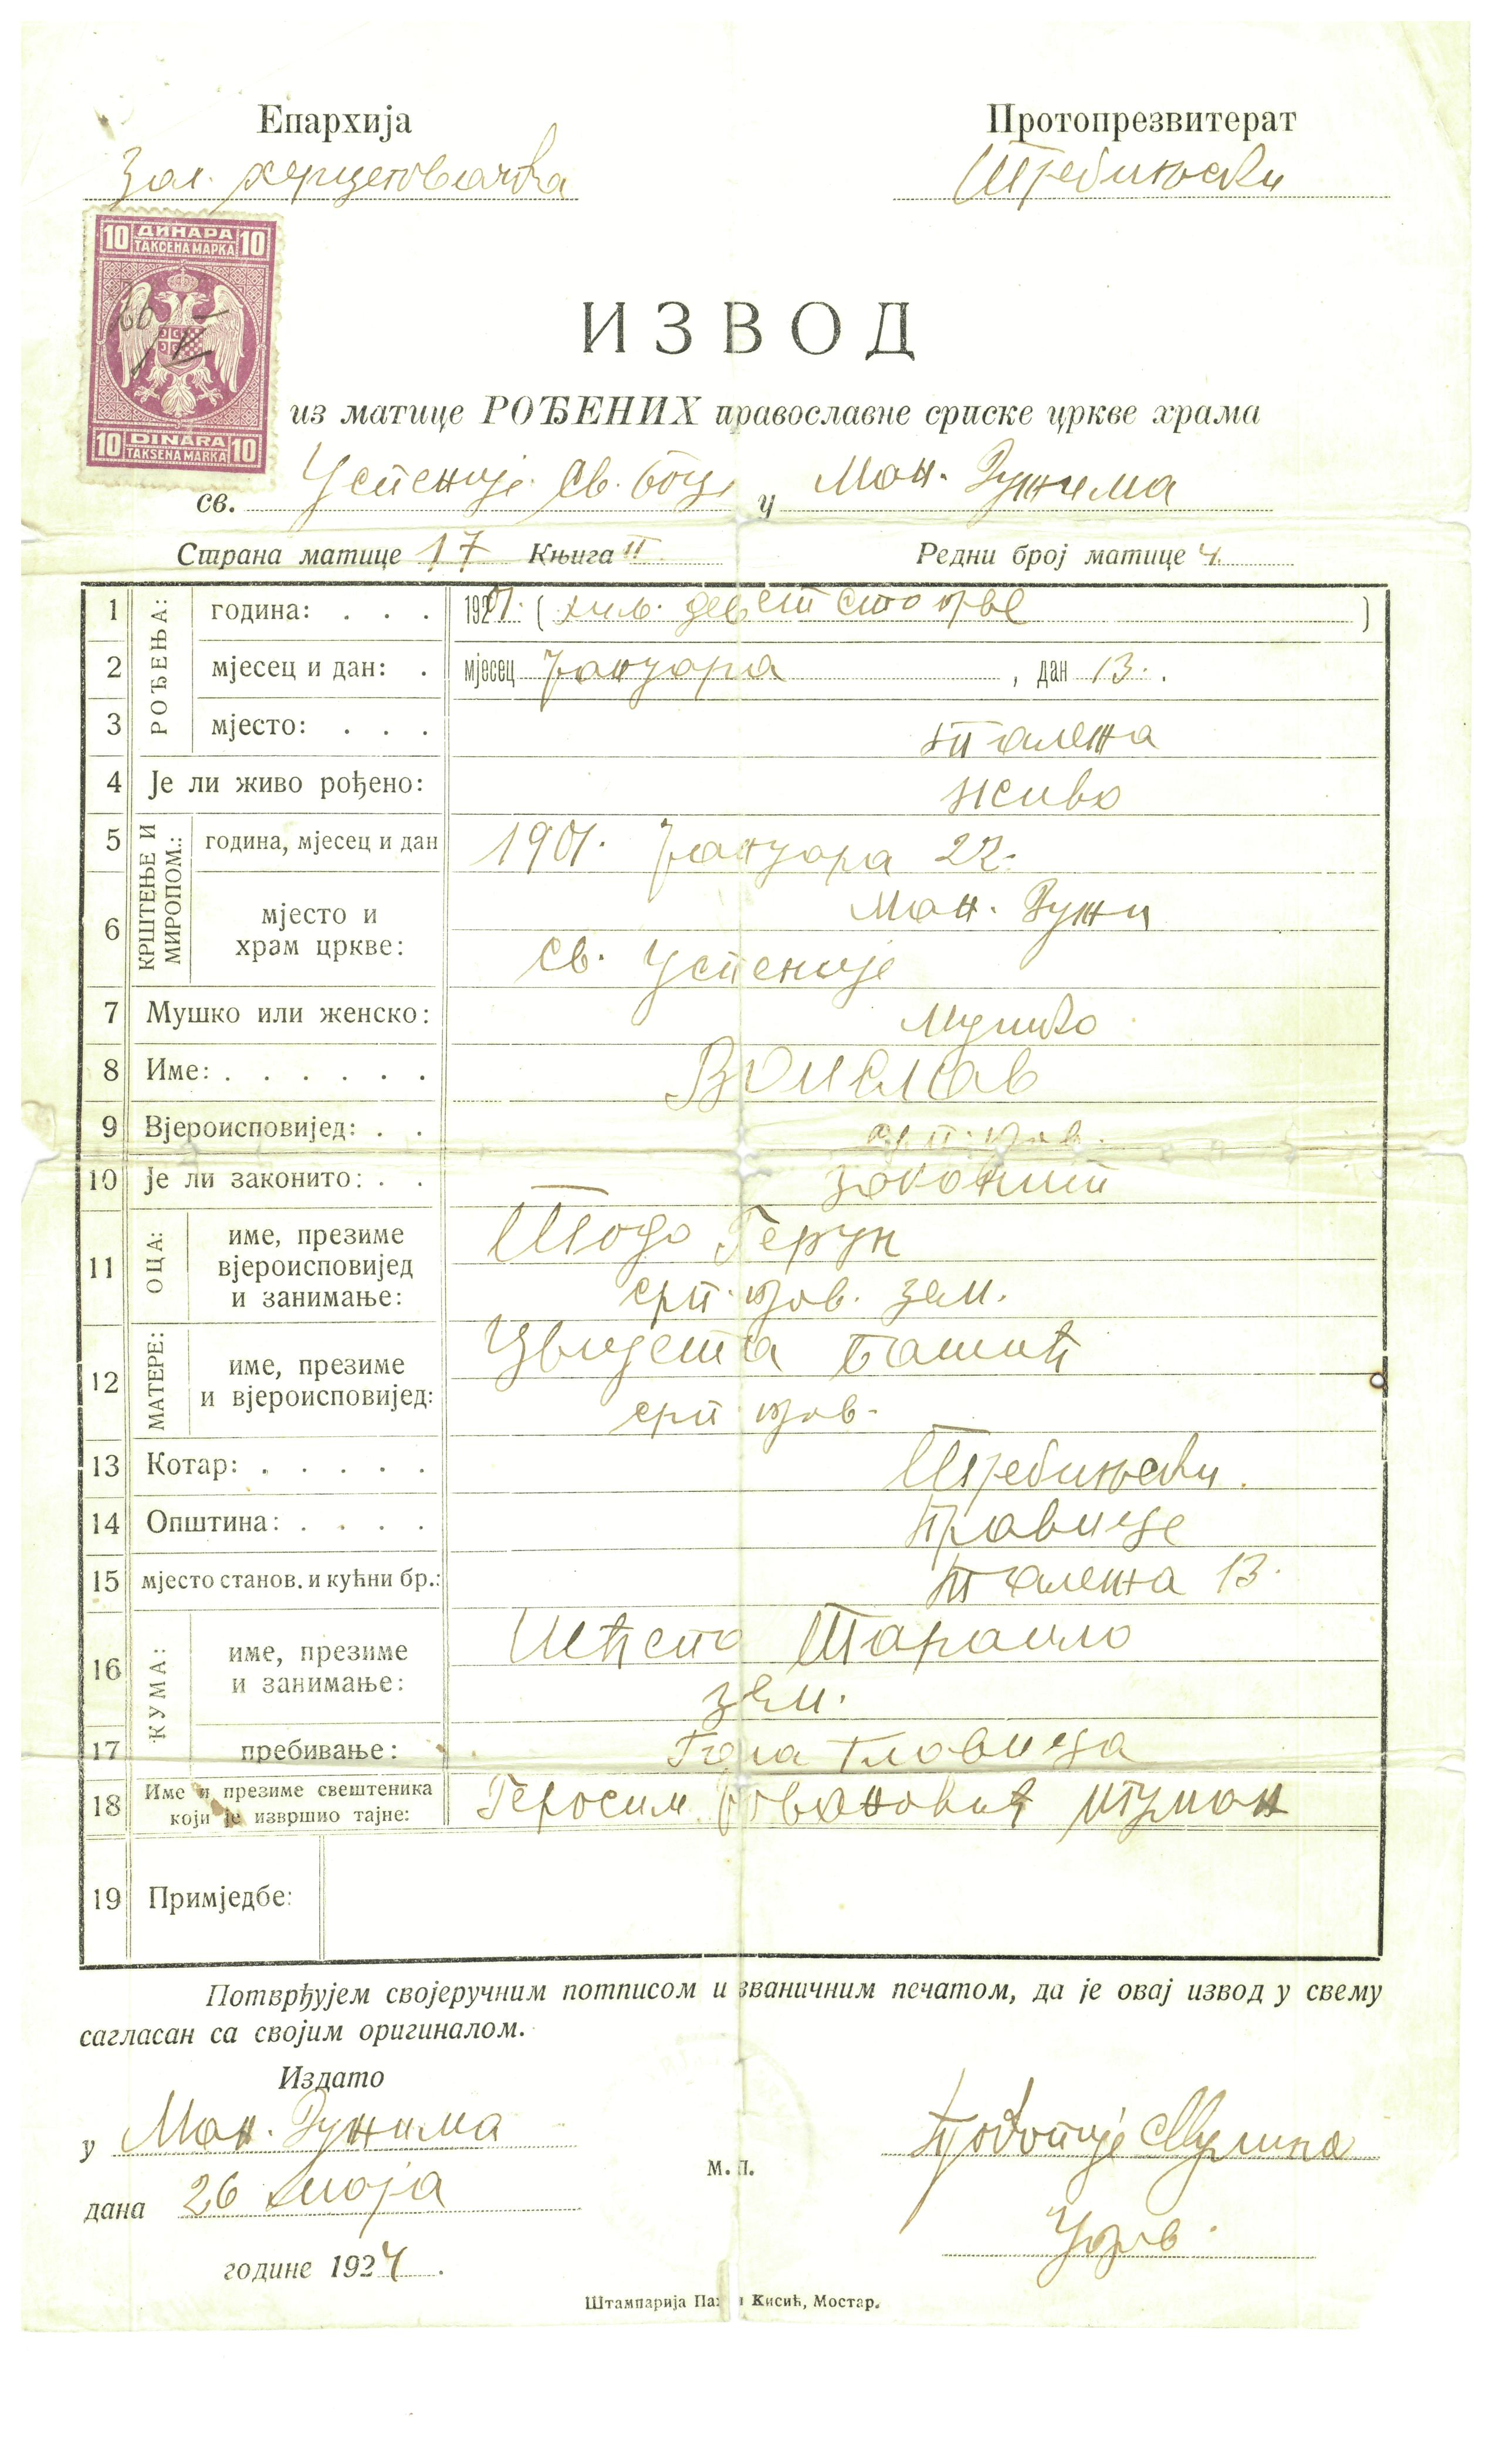 Епархија
Протопрезвитерат
Зах. херцеговачка
Требињски
10 ДИНАРА 10
ТАКСЕНА МАРКА
26
V
10 DINARA 10
TAKSENA MARKA
ИЗВОД
из матице РОЂЕНИХ православне српске цркве храма
св. Успеније Св. Боц. у Ман. Дужима
Страна матице 17 Књига II Редни број матице 4.
РОЂЕЊА:
1 година: . . . 1901. (хиљ. девет сто прве)
2 мјесец и дан: . мјесец Јануара, дан 13.
3 мјесто: . . . Талежа
4 Је ли живо рођено: живо
КРШТЕЊЕ И МИРОПОМ.:
5 година, мјесец и дан 1901. Јануара 22.
6 мјесто и Ман. Дужи
храм цркве: Св. Успеније
7 Мушко или женско: Мушко
8 Име: . . . . . . Војислав
9 Вјероисповијед: . . срп. прав.
10 Је ли законито: . . законит
ОЦА:
11 име, презиме Тодо
вјероисповијед срп. прав. зем.
и занимање:
МАТЕРЕ:
12 име, презиме Цвијета Башић
и вјероисповијед: срп. прав.
13 Котар: . . . . . Требињски.
14 Општина: . . . . 
15 мјесто станов. и кућни бр.: Талежа 13.
КУМА:
16 име, презиме Шћепо Тараило
и занимање: зем.
17 пребивање: Главица
18 Име и презиме свештеника Геросим игуман
који је извршио тајне:
19 Примједбе:
Потврђујем својеручним потписом и званичним печатом, да је овај извод у свему
сагласан са својим оригиналом.
Издато
у Ман. Дужима
дана 26 маја
М. П.
године 1924.
Штампарија Па Кисић, Мостар.